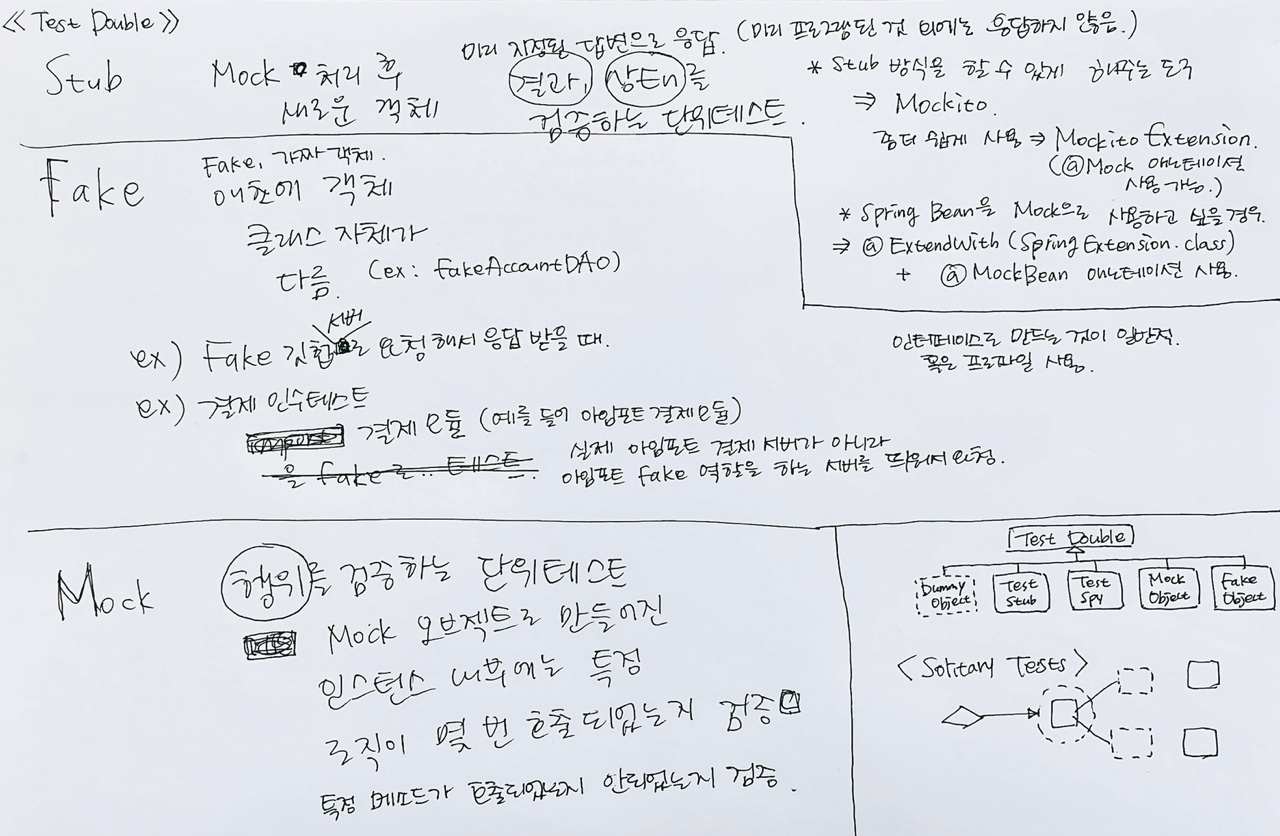 ≪ Test Double ≫
Stub
Mock 처리 후
새로운 객체
미리 지정된 답변으로 응답. (미리 프로그램된 것 외에는 응답하지 않음.)
결과, 상태를
검증하는 단위테스트.
* Stub 방식을 할 수 있게 해주는 도구
⇒ Mockito.
좀더 쉽게 사용 ⇒ Mockito Extension.
(@Mock 애노테이션
사용가능.)
* Spring Bean을 Mock으로 사용하고 싶을 경우.
⇒ @ExtendWith (Spring Extension.class)
+ @MockBean 애노테이션 사용.
Fake
Fake, 가짜 객체.
객체
클래스 자체가
다름. (ex: FakeAccountDAO)
서버
ex) Fake 로 요청해서 응답 받을 때.
ex) 결제 인수테스트
결제 모듈 (예를 들어 아임포트 결제모듈)
을 fake로.. 테스트.
실제 아임포트 결제 서버가 아니라
아임포트 fake 역할을 하는 서버를 띄워서 요청.
인터페이스로 만드는 것이 일반적.
혹은 프로파일 사용.
Mock
행위를 검증하는 단위테스트
Mock 오브젝트로 만들어진
인스턴스 내부에는 특정
로직이 몇 번 호출 되었는지 검증
특정 메소드가 호출되었는지 안되었는지 검증.
Test Double
Dummy Object
Test Stub
Test Spy
Mock Object
Fake Object
< Solitary Tests >